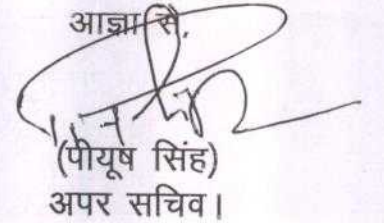 आज्ञा से,
(पीयूष सिंह)
अपर सचिव।